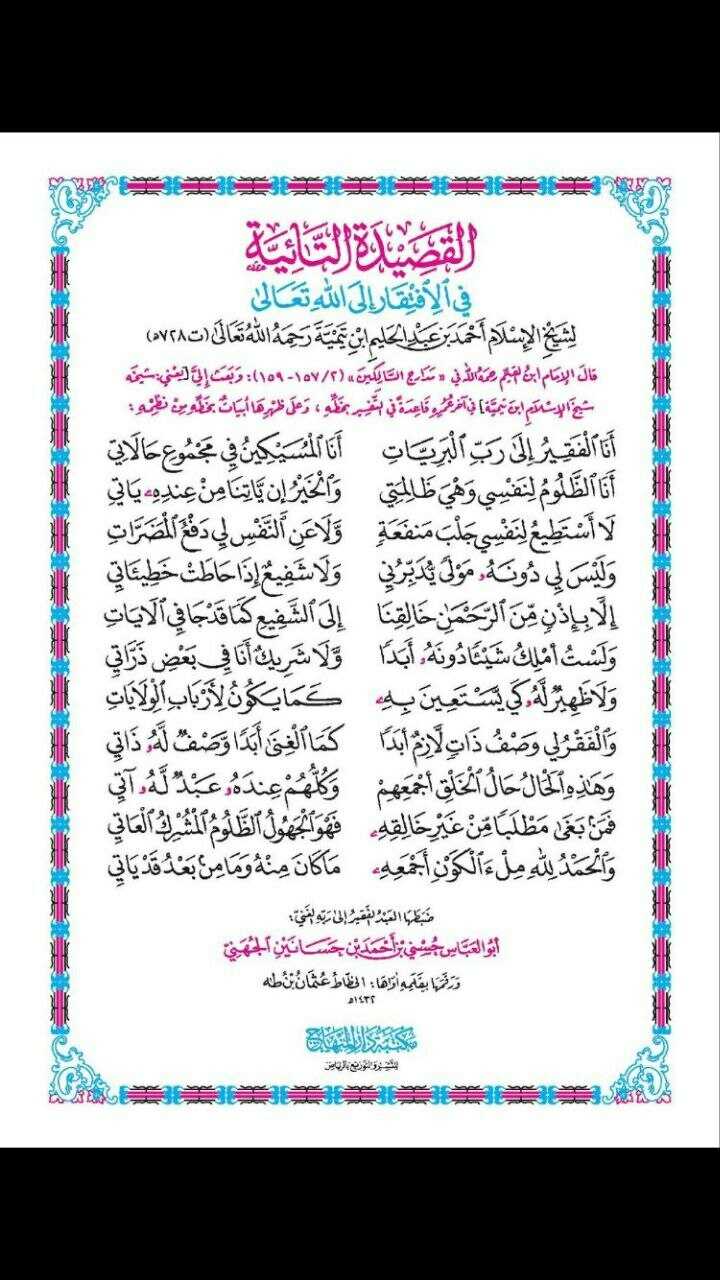 القَصِيدَةُ التَّائِيَّةُ
فِي ٱلِافْتِقَارِ إِلَى اللهِ تَعَالَى
لِشَيْخِ الإِسْلَامِ أَحْمَدَ بْنِ عَبْدِ الحَلِيمِ ابْنِ تَيْمِيَّةَ رَحِمَهُ اللهُ تَعَالَى (ت ٧٢٨ه)
قَالَ الإِمَامُ ابْنُ القَيِّمِ رَحِمَهُ اللهُ فِي «مَدَارِجِ السَّالِكِينَ» (١٥٧/٢-١٥٩): وَبَعَثَ إِلَيَّ [يَعْنِي: شَيْخَهُ
شَيْخَ الإِسْلَامِ ابْنَ تَيْمِيَّةَ] فِي آخِرِ عُمُرِهِ قَاعِدَةً فِي التَّفْسِيرِ بِخَطِّهِ، وَعَلَى ظَهْرِهَا أَبْيَاتٌ بِخَطِّهِ مِنْ نَظْمِهِ:
أَنَا ٱلْفَقِيرُ إِلَى رَبِّ ٱلْبَرِيَّاتِ أَنَا ٱلْمُسَيْكِينُ فِي مَجْمُوعِ حَالَاتِي
أَنَا ٱلظَّلُومُ لِنَفْسِي وَهْيَ ظَالِمَتِي وَٱلْخَيْرُ إِن يَّاتِنَا مِنْ عِندِهِ يَاتِي
لَا أَسْتَطِيعُ لِنَفْسِي جَلْبَ مَنفَعَةٍ وَّلَا عَنِ ٱلنَّفْسِ لِي دَفْعُ ٱلْمَضَرَّاتِ
وَلَيْسَ لِي دُونَهُ مَوْلًى يُّدَبِّرُنِي وَلَا شَفِيعٌ إِذَا حَاطَتْ خَطِيئَاتِي
إِلَّا بِإِذْنٍ مِّنَ ٱلرَّحْمَٰنِ خَالِقِنَا إِلَى ٱلشَّفِيعِ كَمَا قَدْ جَا فِي ٱلْايَاتِ
وَلَسْتُ أَمْلِكُ شَيْئًا دُونَهُ أَبَدًا وَّلَا شَرِيكٌ أَنَا فِي بَعْضِ ذَرَّاتِي
وَلَا ظَهِيرٌ لَّهُ كَي يَّسْتَعِينَ بِهِ كَمَا يَكُونُ لِأَرْبَابِ ٱلْوِلَايَاتِ
وَٱلْفَقْرُ لِي وَصْفُ ذَاتٍ لَّازِمٌ أَبَدًا كَمَا ٱلْغِنَى أَبَدًا وَّصْفٌ لَّهُ ذَاتِي
وَهَٰذِهِ ٱلْحَالُ حَالُ ٱلْخَلْقِ أَجْمَعِهِمْ وَكُلُّهُمْ عِندَهُ عَبْدٌ لَّهُ آتِي
فَمَنْ بَغَى مَطْلَبًا مِّنْ غَيْرِ خَالِقِهِ فَهْوَ ٱلْجَهُولُ ٱلظَّلُومُ ٱلْمُشْرِكُ ٱلْعَاتِي
وَٱلْحَمْدُ لِلَّهِ مِلْءَ ٱلْكَوْنِ أَجْمَعِهِ مَا كَانَ مِنْهُ وَمَا مِنْ بَعْدُ قَدْ يَاتِي
ضَبَطَهَا العَبْدُ الفَقِيرُ إِلَى رَبِّهِ الغَنِيِّ:
أَبُو العَبَّاسِ حُسْنِي بْنُ أَحْمَدَ بْنِ حَسَانَيْنِ الجُهَنِيُّ
وَرَقَمَهَا بِقَلَمِهِ أَوَّاهَا: الخَطَّاطُ عُثْمَانُ بْنُ طٰهٰ
١٤٣٢ه
مَكْتَبَةُ دَارِ المِنْهَاجِ
لِلنَّشْرِ وَالتَّوْزِيعِ بِالرِّيَاضِ